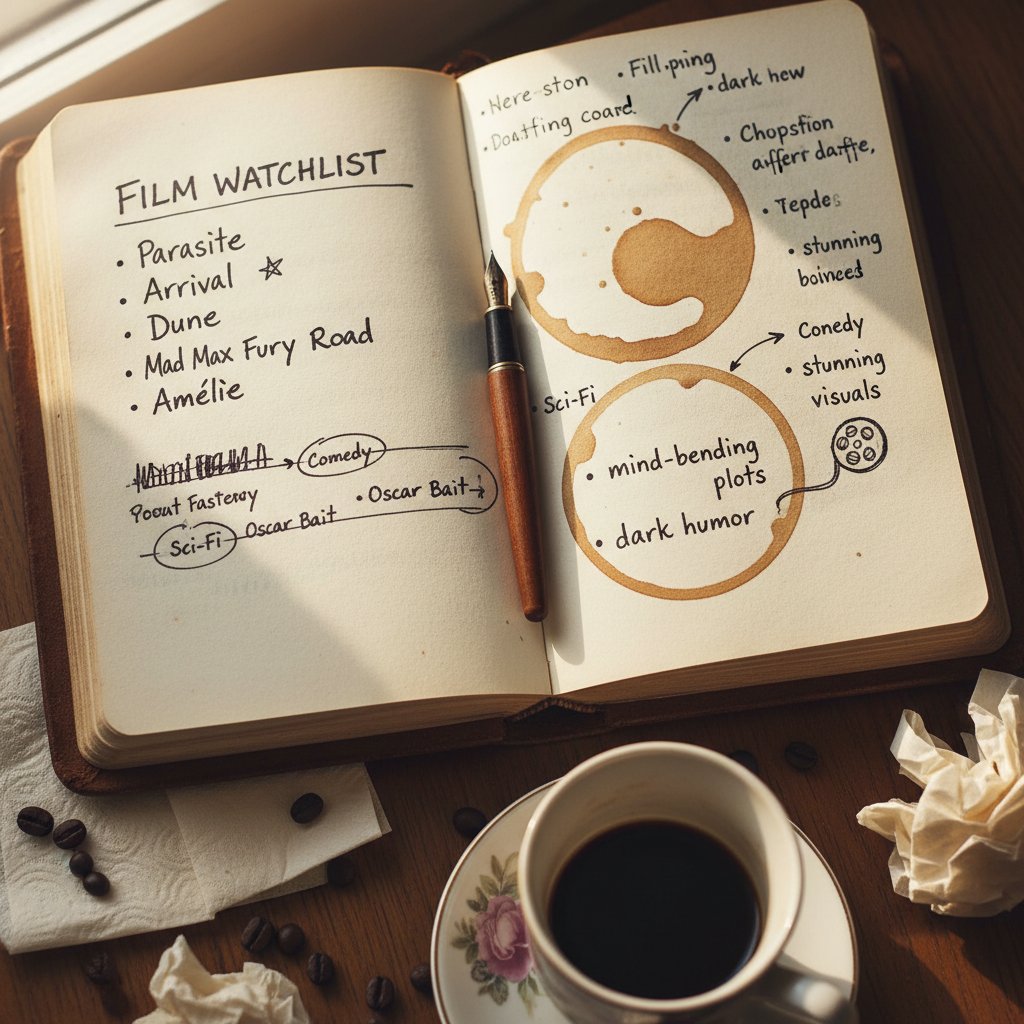 FILM WATCHLIST
• Parasite
• Arrival ☆
• Dune
• Mad Max Fury Road
• Amélie
Comedy
• Oscar Bait
Sci-Fi Oscar Bait
• Here-ston
• Fill.ping
• dark hew
coard
• Chopsfion
• Tepdes
• stunning
Conedy
• stunning
visuals
• Sci-Fi
• mind-bending
plots
• dark humor